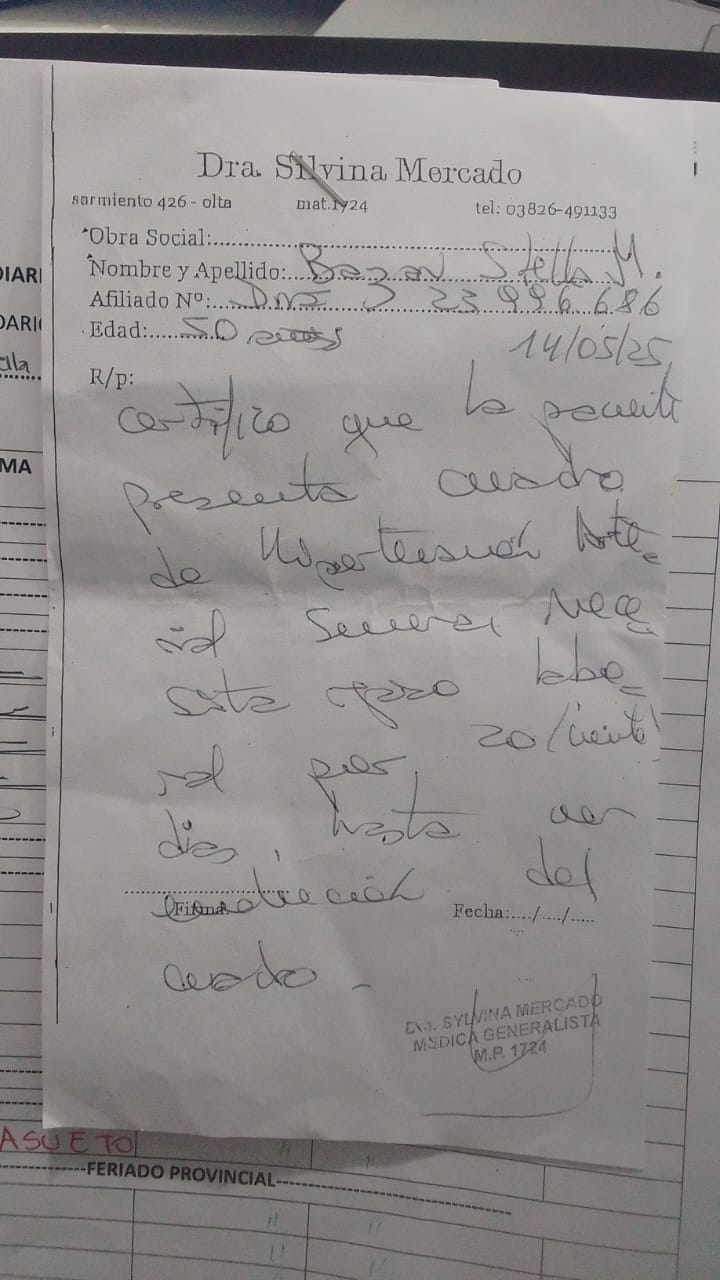 Dra. Silvina Mercado
sarmiento 426 - olta mat.1724 tel: 03826-491133
Obra Social:
Nombre y Apellido: Bazan Stella M.
Afiliado Nº: DNI 23 996.686
Edad: 50 años 14/05/25
R/p:
Certifico que la paciente
presenta cuadro
de Hipertensión Arte
rial Severa, Nece
sita reposo labo
ral por 20 /veinte/
dias, hasta ver
evolución del
Firma Fecha:..../..../.....
cuadro -
Dra. SYLVINA MERCADO
MEDICA GENERALISTA
M.P. 1724
DIARI
DARIO
MA
ASUETO
FERIADO PROVINCIAL